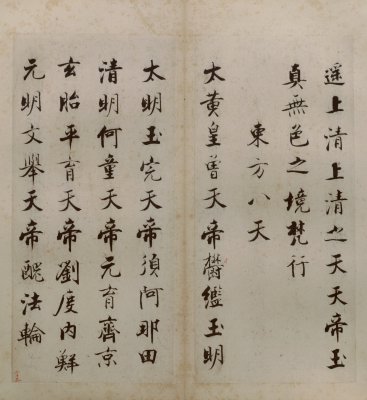 遙上清上清之天天帝玉
真無色之境梵行
東方八天
太黃皇曾天帝欝鑑玉明
太明玉完天帝須阿那田
清明何童天帝元育齊京
玄胎平育天帝劉度內鮮
元明文舉天帝醜法輪